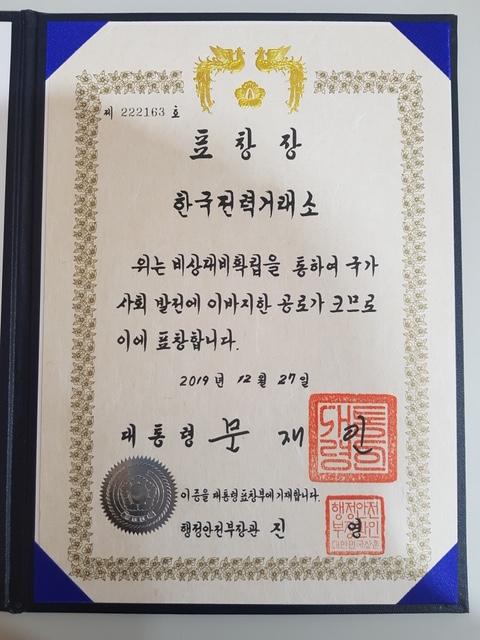 제 222163 호
표 창 장
한국전력거래소
위는 비상대비확립을 통하여 국가
사회 발전에 이바지한 공로가 크므로
이에 표창합니다.
2019 년 12 월 27 일
대통령 문 재 인
대통
령인
이 증을 대통령 표창부에 기재합니다.
행정안전부장관 진 영
행정안전
부장관인